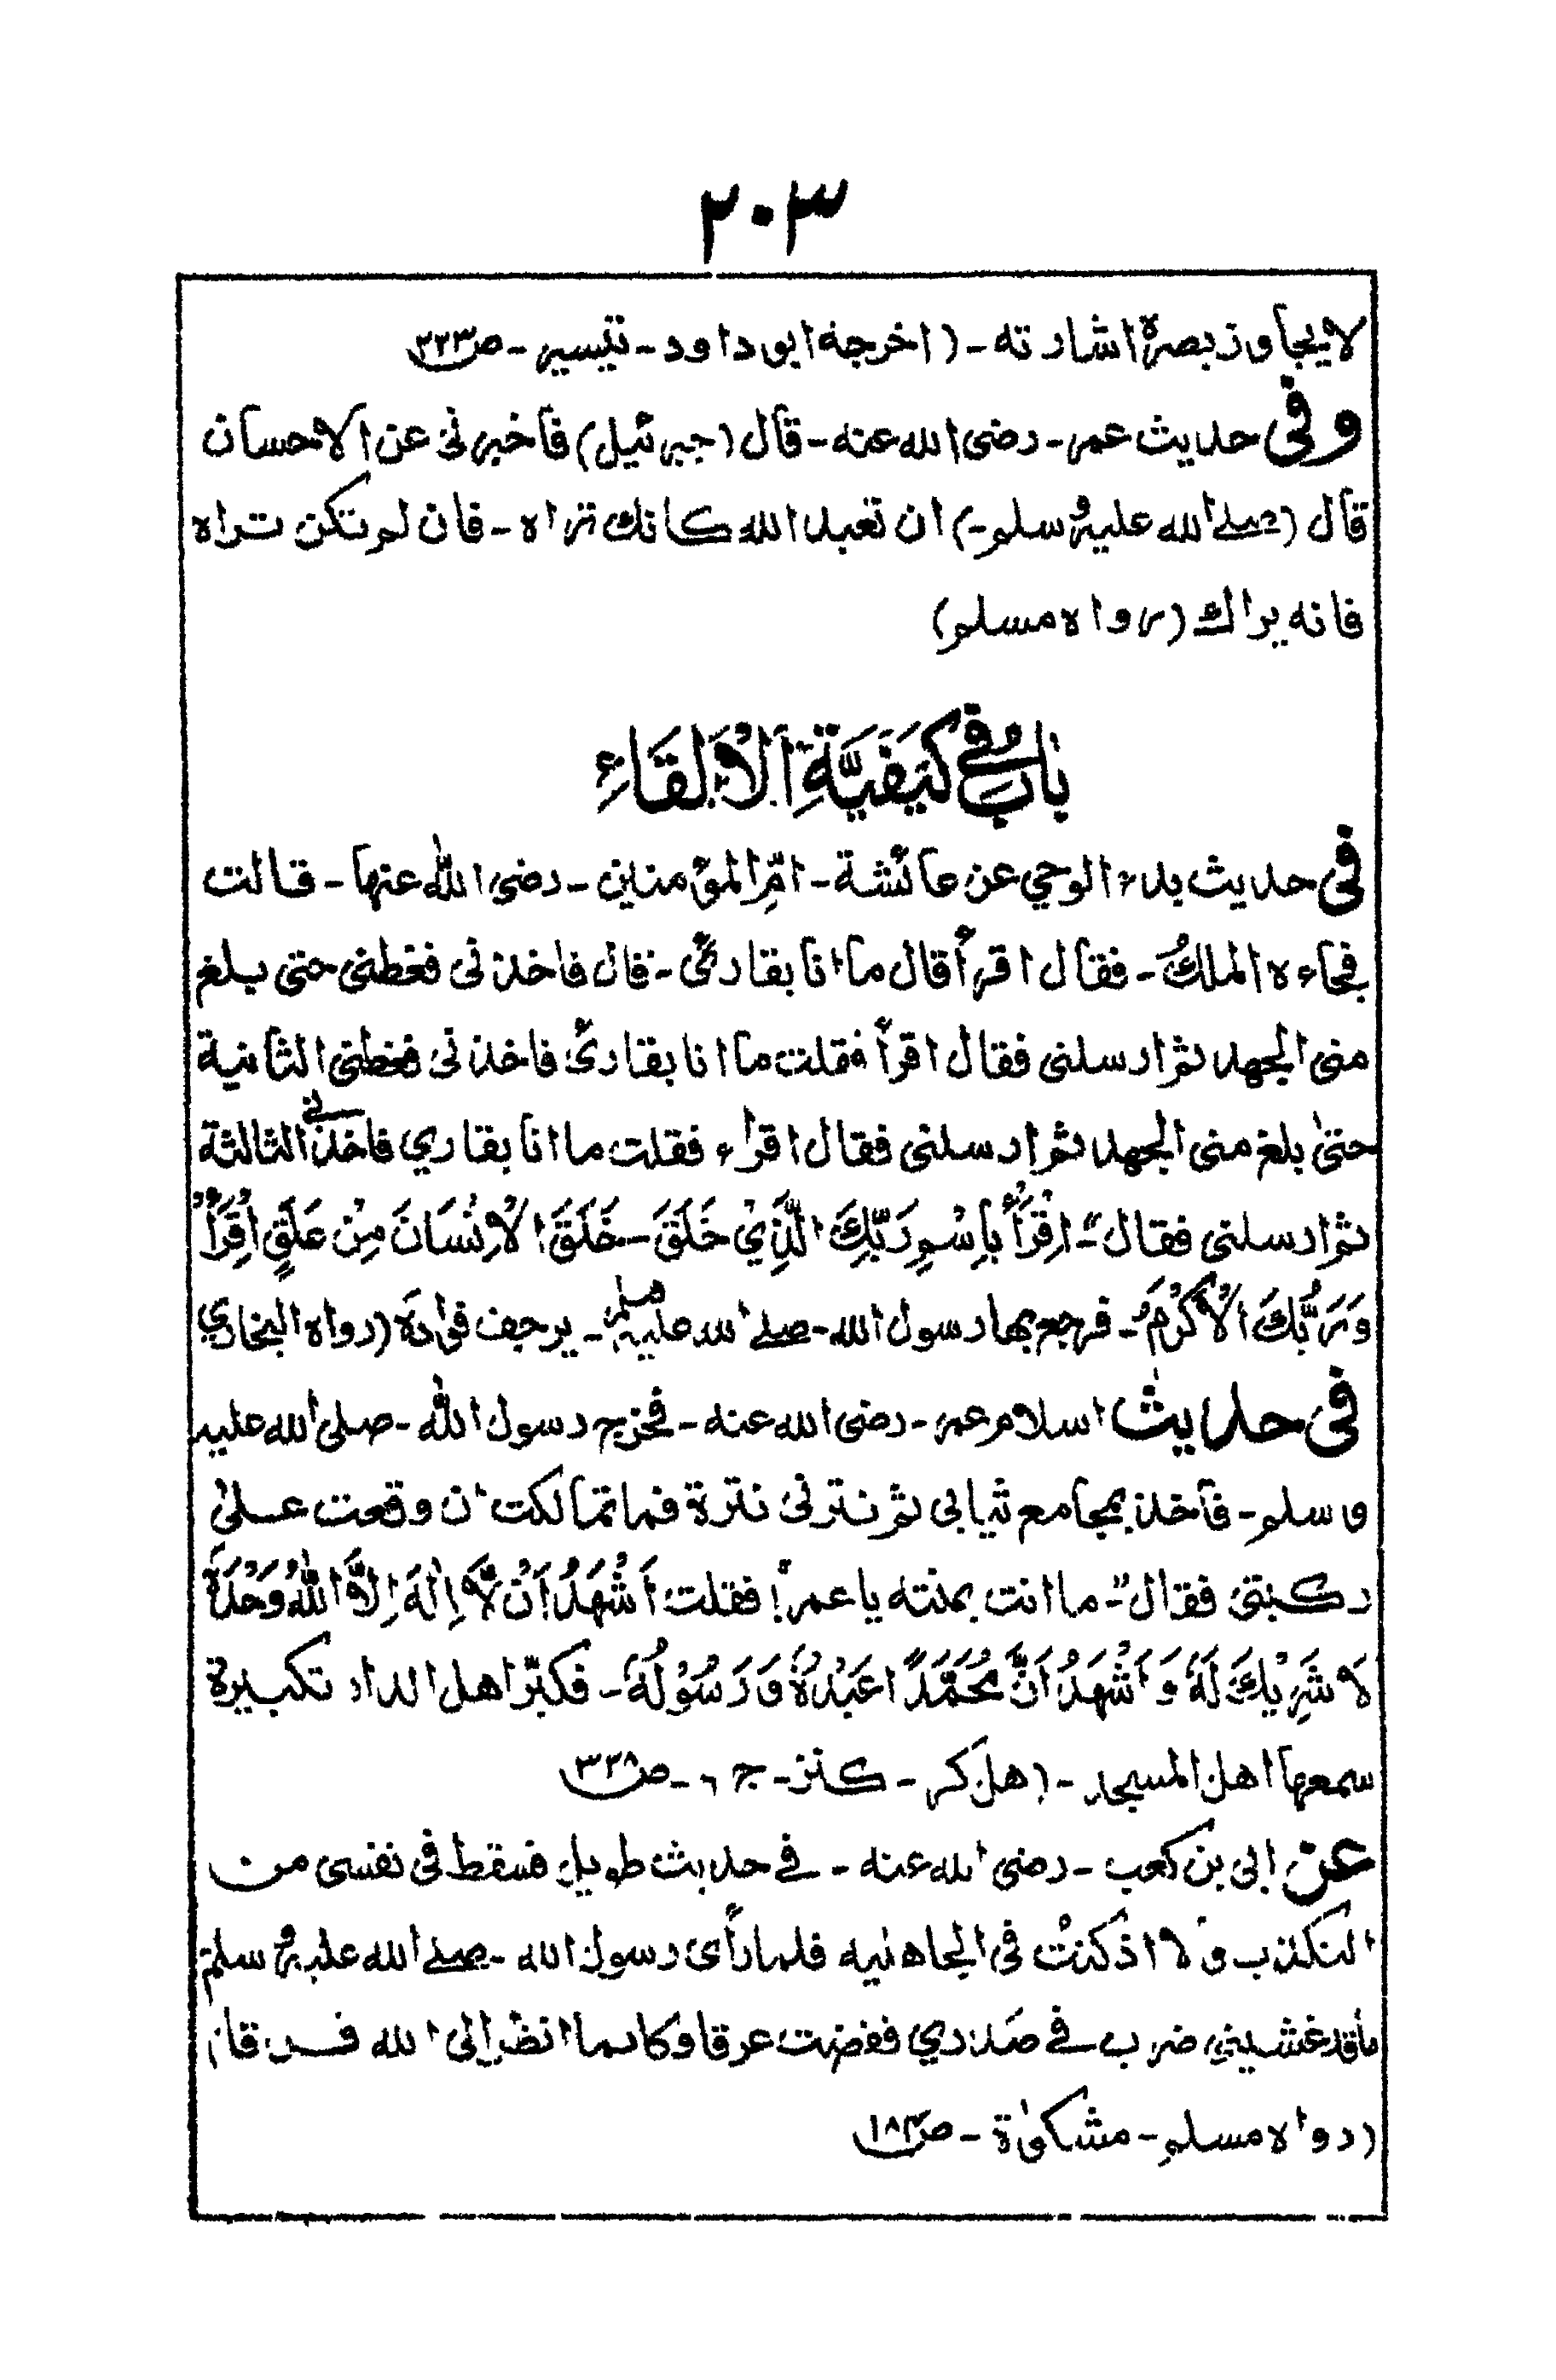 ٢٠٣
لا يجاوز بصرة اشارته - (اخرجه ابو داود - تيسير - ص٣٢٣
وفی حديث عمر - رضی الله عنه - قال (جبرئيل) فاخبرنی عن الاحسان
قال (صلے الله عليه وسلم -) ان تعبد الله كانك تراه - فان لم تكن تراه
فانه يراك (رواه مسلم)
بَابٌ فِي كَيَفِيَّةِ اَلْاِلقَاءِ
فی حديث بدء الوحي عن عائشة - امِّ المؤمنين - رضی اللّٰه عنها - قالت
فجاءه الملكُ - فقال اقرأ قال ما انا بقارئ - قال فاخذنی فغطنی حتی بلغ
منی الجهد ثم ارسلنی فقال اقرأ فقلت ما انا بقارئ فاخذنی فغطنی الثانية
حتىٰ بلغ منی الجهد ثم ارسلنی فقال اقراء فقلت ما انا بقاري فاخذنی الثالثة
ثم ارسلنی فقال "- اِقْرَأْ بِاِسْمِ رَبِّكَ الَّذِيْ خَلَقَ - خَلَقَ الْاِنْسَانَ مِنْ عَلَقٍ اِقْرَأْ
وَرَبُّكَ الْاَكْرَمُ - فرجع بها رسول الله - صلے الله عليه وسلم - يرجف فوادَهٗ (رواه البخاري
فی حديث اسلام عمر - رضی الله عنه - فخرج رسول اللّٰه - صلی الله عليه
و سلم - فآخذ بمجامع ثيابی ثم نترنی نترة فما تمالكت ان وقعت علیٰ
ركبتی فقال "- ما انت بمنته يا عمر؟! فقلت اَشْهَدُ اَنْ لَّا اِلٰهَ اِلَّا اللّٰهُ وَحْدَهٗ
لَا شَرِيْكَ لَهٗ وَ اَشْهَدُ اَنَّ مُحَمَّدًا عَبْدُهٗ وَ رَسُوْلُهٗ - فكبّر اهل الدار تكبيرة
سمعها اهل المسجد - (هل كر - كنز - ج ٦ - ص٣٣٨
عن ابی بن كعب - رضی الله عنه - فے حديث طويل فسقط فی نفسی من
التكذب ولا اذ كنتُ فی الجاهليه فلما رأی رسول الله - صلے الله عليه و سلم
ما قد غشيني ضرب فے صَدري ففضت عرقا وكانما انظر الی الله فرقا
(رواه مسلم - مشكوٰة - ص١٨٤